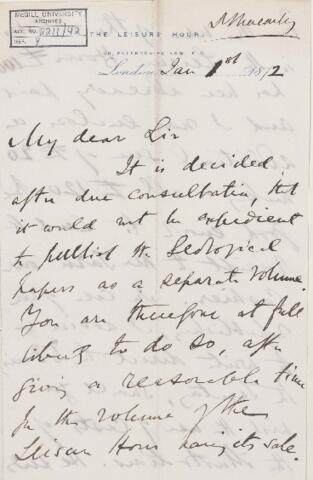 McGILL UNIVERSITY
ARCHIVES
ACC. NO. 2211/92
REF. 9
THE LEISURE HOUR,
56, PATERNOSTER ROW, E.C.
London, Jan 1st 1872
My dear Sir
It is decided
after due consultation, that
it would not be expedient
to publish the Geological
papers as a separate volume.
You are therefore at full
liberty to do so, after
giving a reasonable time
for the volume of the
Leisure Hour having its sale.